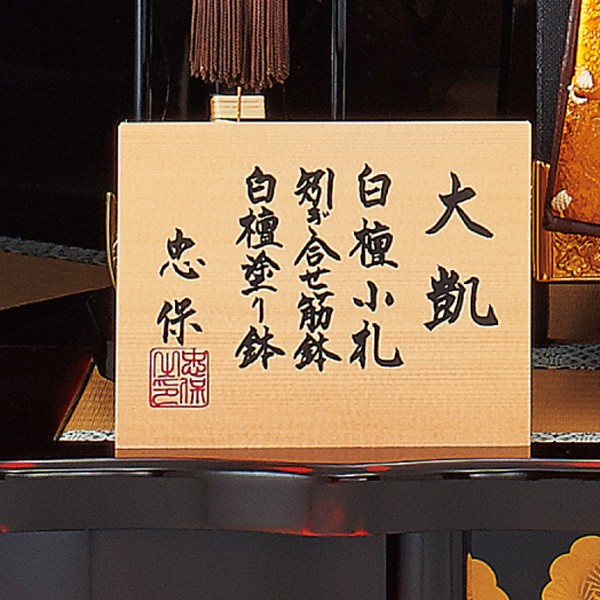 大凱
白檀小札
矧ぎ合せ筋鉢
白檀塗り鉢
忠保
忠保之印